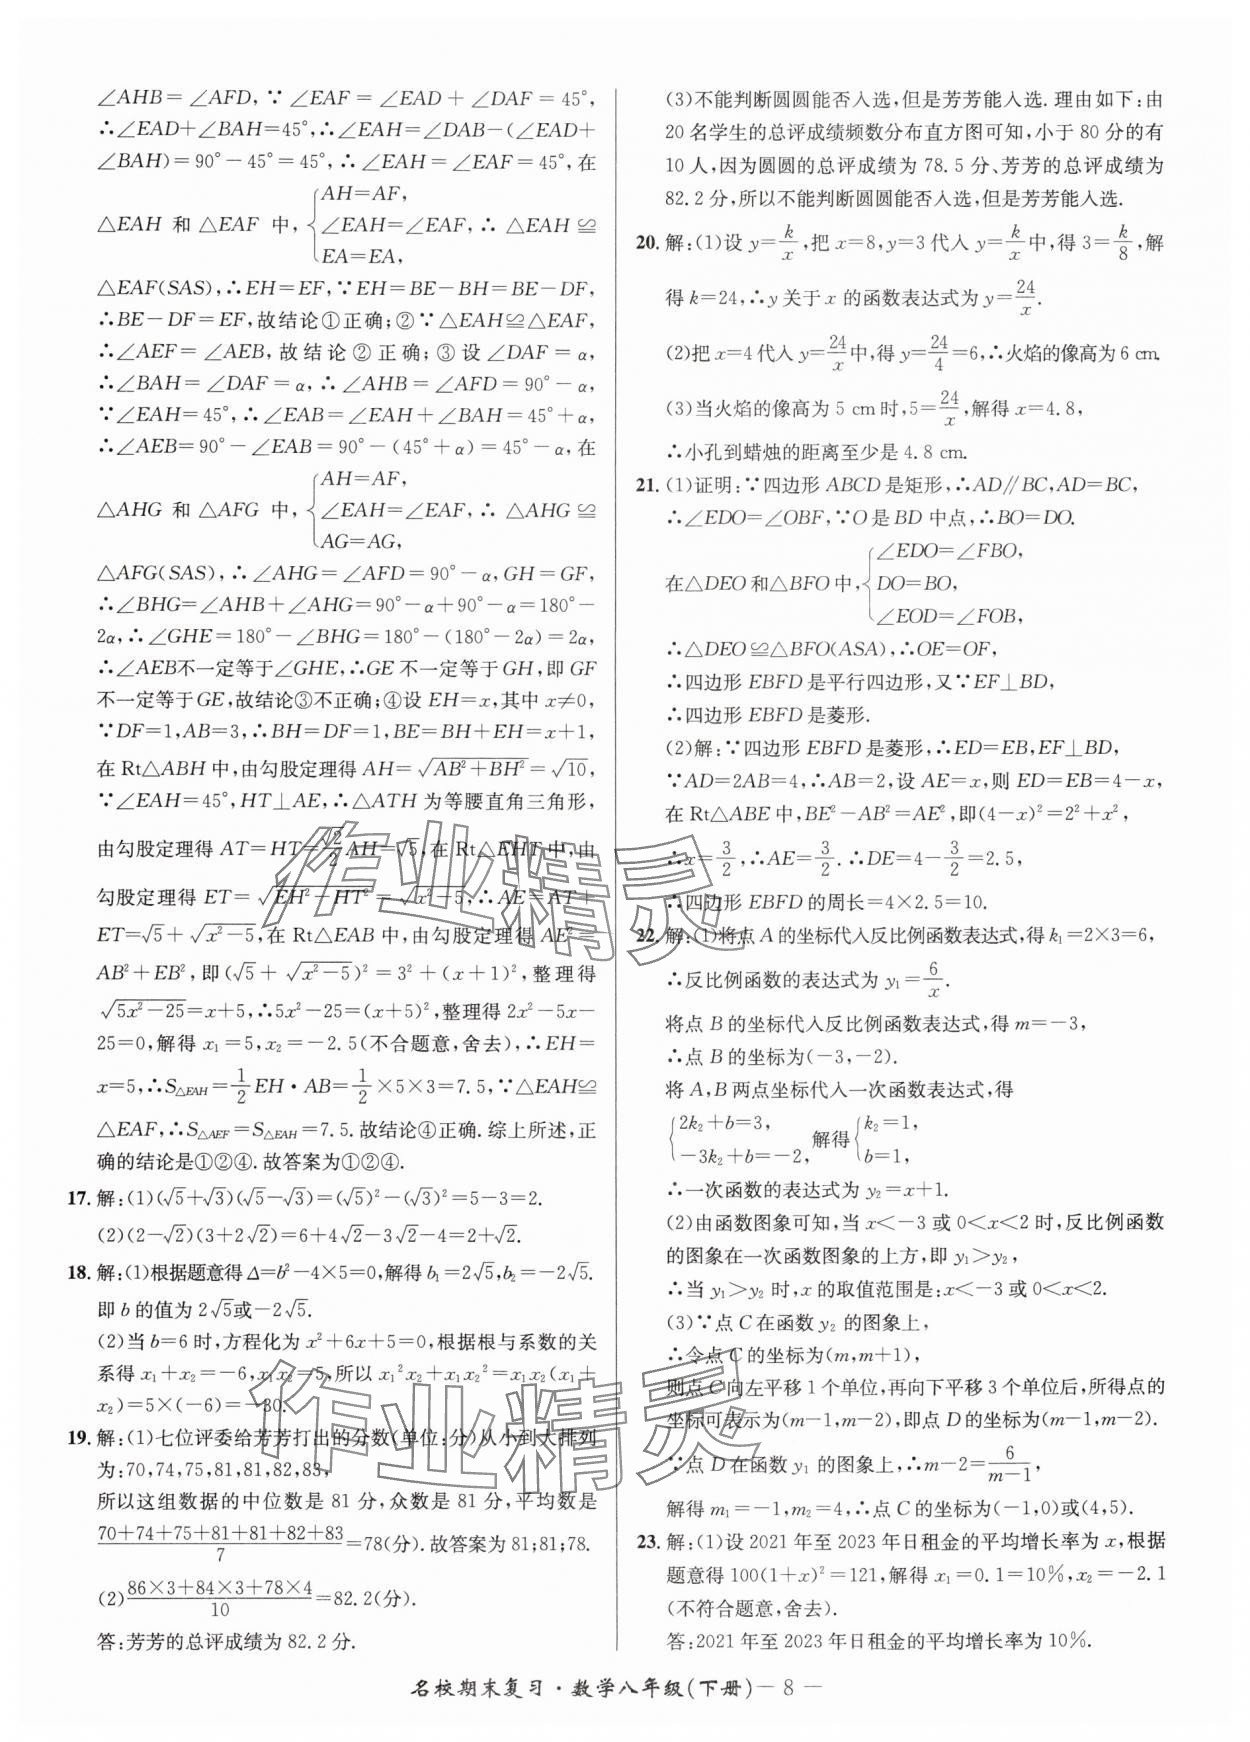 ∠AHB=∠AFD,∵∠EAF=∠EAD+∠DAF=45°,
∴∠EAD+∠BAH=45°,∴∠EAH=∠DAB-(∠EAD+
∠BAH)=90°-45°=45°,∴∠EAH=∠EAF=45°,在
△EAH 和 △EAF 中,{AH=AF, ∠EAH=∠EAF, EA=EA, ∴△EAH≌
△EAF(SAS),∴EH=EF,∵EH=BE-BH=BE-DF,
∴BE-DF=EF,故结论①正确;②∵△EAH≌△EAF,
∴∠AEF=∠AEB,故结论②正确;③设∠DAF=α,
∴∠BAH=∠DAF=α,∴∠AHB=∠AFD=90°-α,
∵∠EAH=45°,∴∠EAB=∠EAH+∠BAH=45°+α,
∴∠AEB=90°-∠EAB=90°-(45°+α)=45°-α,在
△AHG 和 △AFG 中,{AH=AF, ∠EAH=∠EAF, AG=AG, ∴△AHG≌
△AFG(SAS),∴∠AHG=∠AFD=90°-α,GH=GF,
∴∠BHG=∠AHB+∠AHG=90°-α+90°-α=180°-
2α,∴∠GHE=180°-∠BHG=180°-(180°-2α)=2α,
∴∠AEB不一定等于∠GHE,∴GE不一定等于GH,即GF
不一定等于GE,故结论③不正确;④设EH=x,其中x≠0,
∵DF=1,AB=3,∴BH=DF=1,BE=BH+EH=x+1,
在Rt△ABH中,由勾股定理得AH=√(AB²+BH²)=√10,
∵∠EAH=45°,HT⊥AE,∴△ATH为等腰直角三角形,
由勾股定理得AT=HT=√2/2AH=√5,在Rt△EHT中,由
勾股定理得ET=√(EH²-HT²)=√(x²-5),∴AE=AT+
ET=√5+√(x²-5),在Rt△EAB中,由勾股定理得AE²=
AB²+EB²,即(√5+√(x²-5))²=3²+(x+1)²,整理得
√(5x²-25)=x+5,∴5x²-25=(x+5)²,整理得2x²-5x-
25=0,解得x₁=5,x₂=-2.5(不合题意,舍去),∴EH=
x=5,∴S△EAH=1/2EH·AB=1/2×5×3=7.5,∵△EAH≌
△EAF,∴S△AEF=S△EAH=7.5.故结论④正确.综上所述,正
确的结论是①②④.故答案为①②④.
17.解:(1)(√5+√3)(√5-√3)=(√5)²-(√3)²=5-3=2.
(2)(2-√2)(3+2√2)=6+4√2-3√2-4=2+√2.
18.解:(1)根据题意得Δ=b²-4×5=0,解得b₁=2√5,b₂=-2√5.
即b的值为2√5或-2√5.
(2)当b=6时,方程化为x²+6x+5=0,根据根与系数的关
系得x₁+x₂=-6,x₁x₂=5,所以x₁²x₂+x₁x₂²=x₁x₂(x₁+
x₂)=5×(-6)=-30.
19.解:(1)七位评委给芳芳打出的分数(单位:分)从小到大排列
为:70,74,75,81,81,82,83,
所以这组数据的中位数是81分,众数是81分,平均数是
(70+74+75+81+81+82+83)/7=78(分).故答案为81;81;78.
(2)(86×3+84×3+78×4)/10=82.2(分).
答:芳芳的总评成绩为82.2分.
(3)不能判断圆圆能否入选,但是芳芳能入选.理由如下:由
20名学生的总评成绩频数分布直方图可知,小于80分的有
10人,因为圆圆的总评成绩为78.5分、芳芳的总评成绩为
82.2分,所以不能判断圆圆能否入选,但是芳芳能入选.
20.解:(1)设y=k/x,把x=8,y=3代入y=k/x中,得3=k/8,解
得k=24,∴y关于x的函数表达式为y=24/x.
(2)把x=4代入y=24/x中,得y=24/4=6,∴火焰的像高为6 cm.
(3)当火焰的像高为5 cm时,5=24/x,解得x=4.8,
∴小孔到蜡烛的距离至少是4.8 cm.
21.(1)证明:∵四边形ABCD是矩形,∴AD∥BC,AD=BC,
∴∠EDO=∠OBF,∵O是BD中点,∴BO=DO.
在△DEO和△BFO中,{∠EDO=∠FBO, DO=BO, ∠EOD=∠FOB,
∴△DEO≌△BFO(ASA),∴OE=OF,
∴四边形EBFD是平行四边形,又∵EF⊥BD,
∴四边形EBFD是菱形.
(2)解:∵四边形EBFD是菱形,∴ED=EB,EF⊥BD,
∵AD=2AB=4,∴AB=2,设AE=x,则ED=EB=4-x,
在Rt△ABE中,BE²-AB²=AE²,即(4-x)²=2²+x²,
∴x=3/2,∴AE=3/2.∴DE=4-3/2=2.5,
∴四边形EBFD的周长=4×2.5=10.
22.解:(1)将点A的坐标代入反比例函数表达式,得k₁=2×3=6,
∴反比例函数的表达式为y₁=6/x.
将点B的坐标代入反比例函数表达式,得m=-3,
∴点B的坐标为(-3,-2).
将A,B两点坐标代入一次函数表达式,得
{2k₂+b=3, -3k₂+b=-2, 解得{k₂=1, b=1,
∴一次函数的表达式为y₂=x+1.
(2)由函数图象可知,当x<-3或0<x<2时,反比例函数
的图象在一次函数图象的上方,即y₁>y₂,
∴当y₁>y₂时,x的取值范围是:x<-3或0<x<2.
(3)∵点C在函数y₂的图象上,
∴令点C的坐标为(m,m+1),
则点C向左平移1个单位,再向下平移3个单位后,所得点的
坐标可表示为(m-1,m-2),即点D的坐标为(m-1,m-2).
∵点D在函数y₁的图象上,∴m-2=6/(m-1),
解得m₁=-1,m₂=4,∴点C的坐标为(-1,0)或(4,5).
23.解:(1)设2021年至2023年日租金的平均增长率为x,根据
题意得100(1+x)²=121,解得x₁=0.1=10%,x₂=-2.1
(不符合题意,舍去).
答:2021年至2023年日租金的平均增长率为10%.
名校期末复习·数学八年级(下册)— 8 —
作业精灵
作业精灵